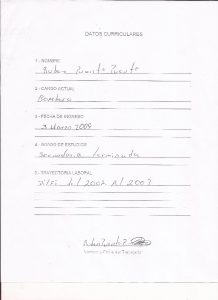 DATOS CURRICULARES
1.- NOMBRE
Ruben Puente Puente
2.- CARGO ACTUAL
Bombero
3.- FECHA DE INGRESO
3 Marzo 2009
4.- GRADO DE ESTUDIOS
Secundaria terminada
5.- TRAYECTORIA LABORAL
2002 Al 2003
Nombre y Firma del Trabajador